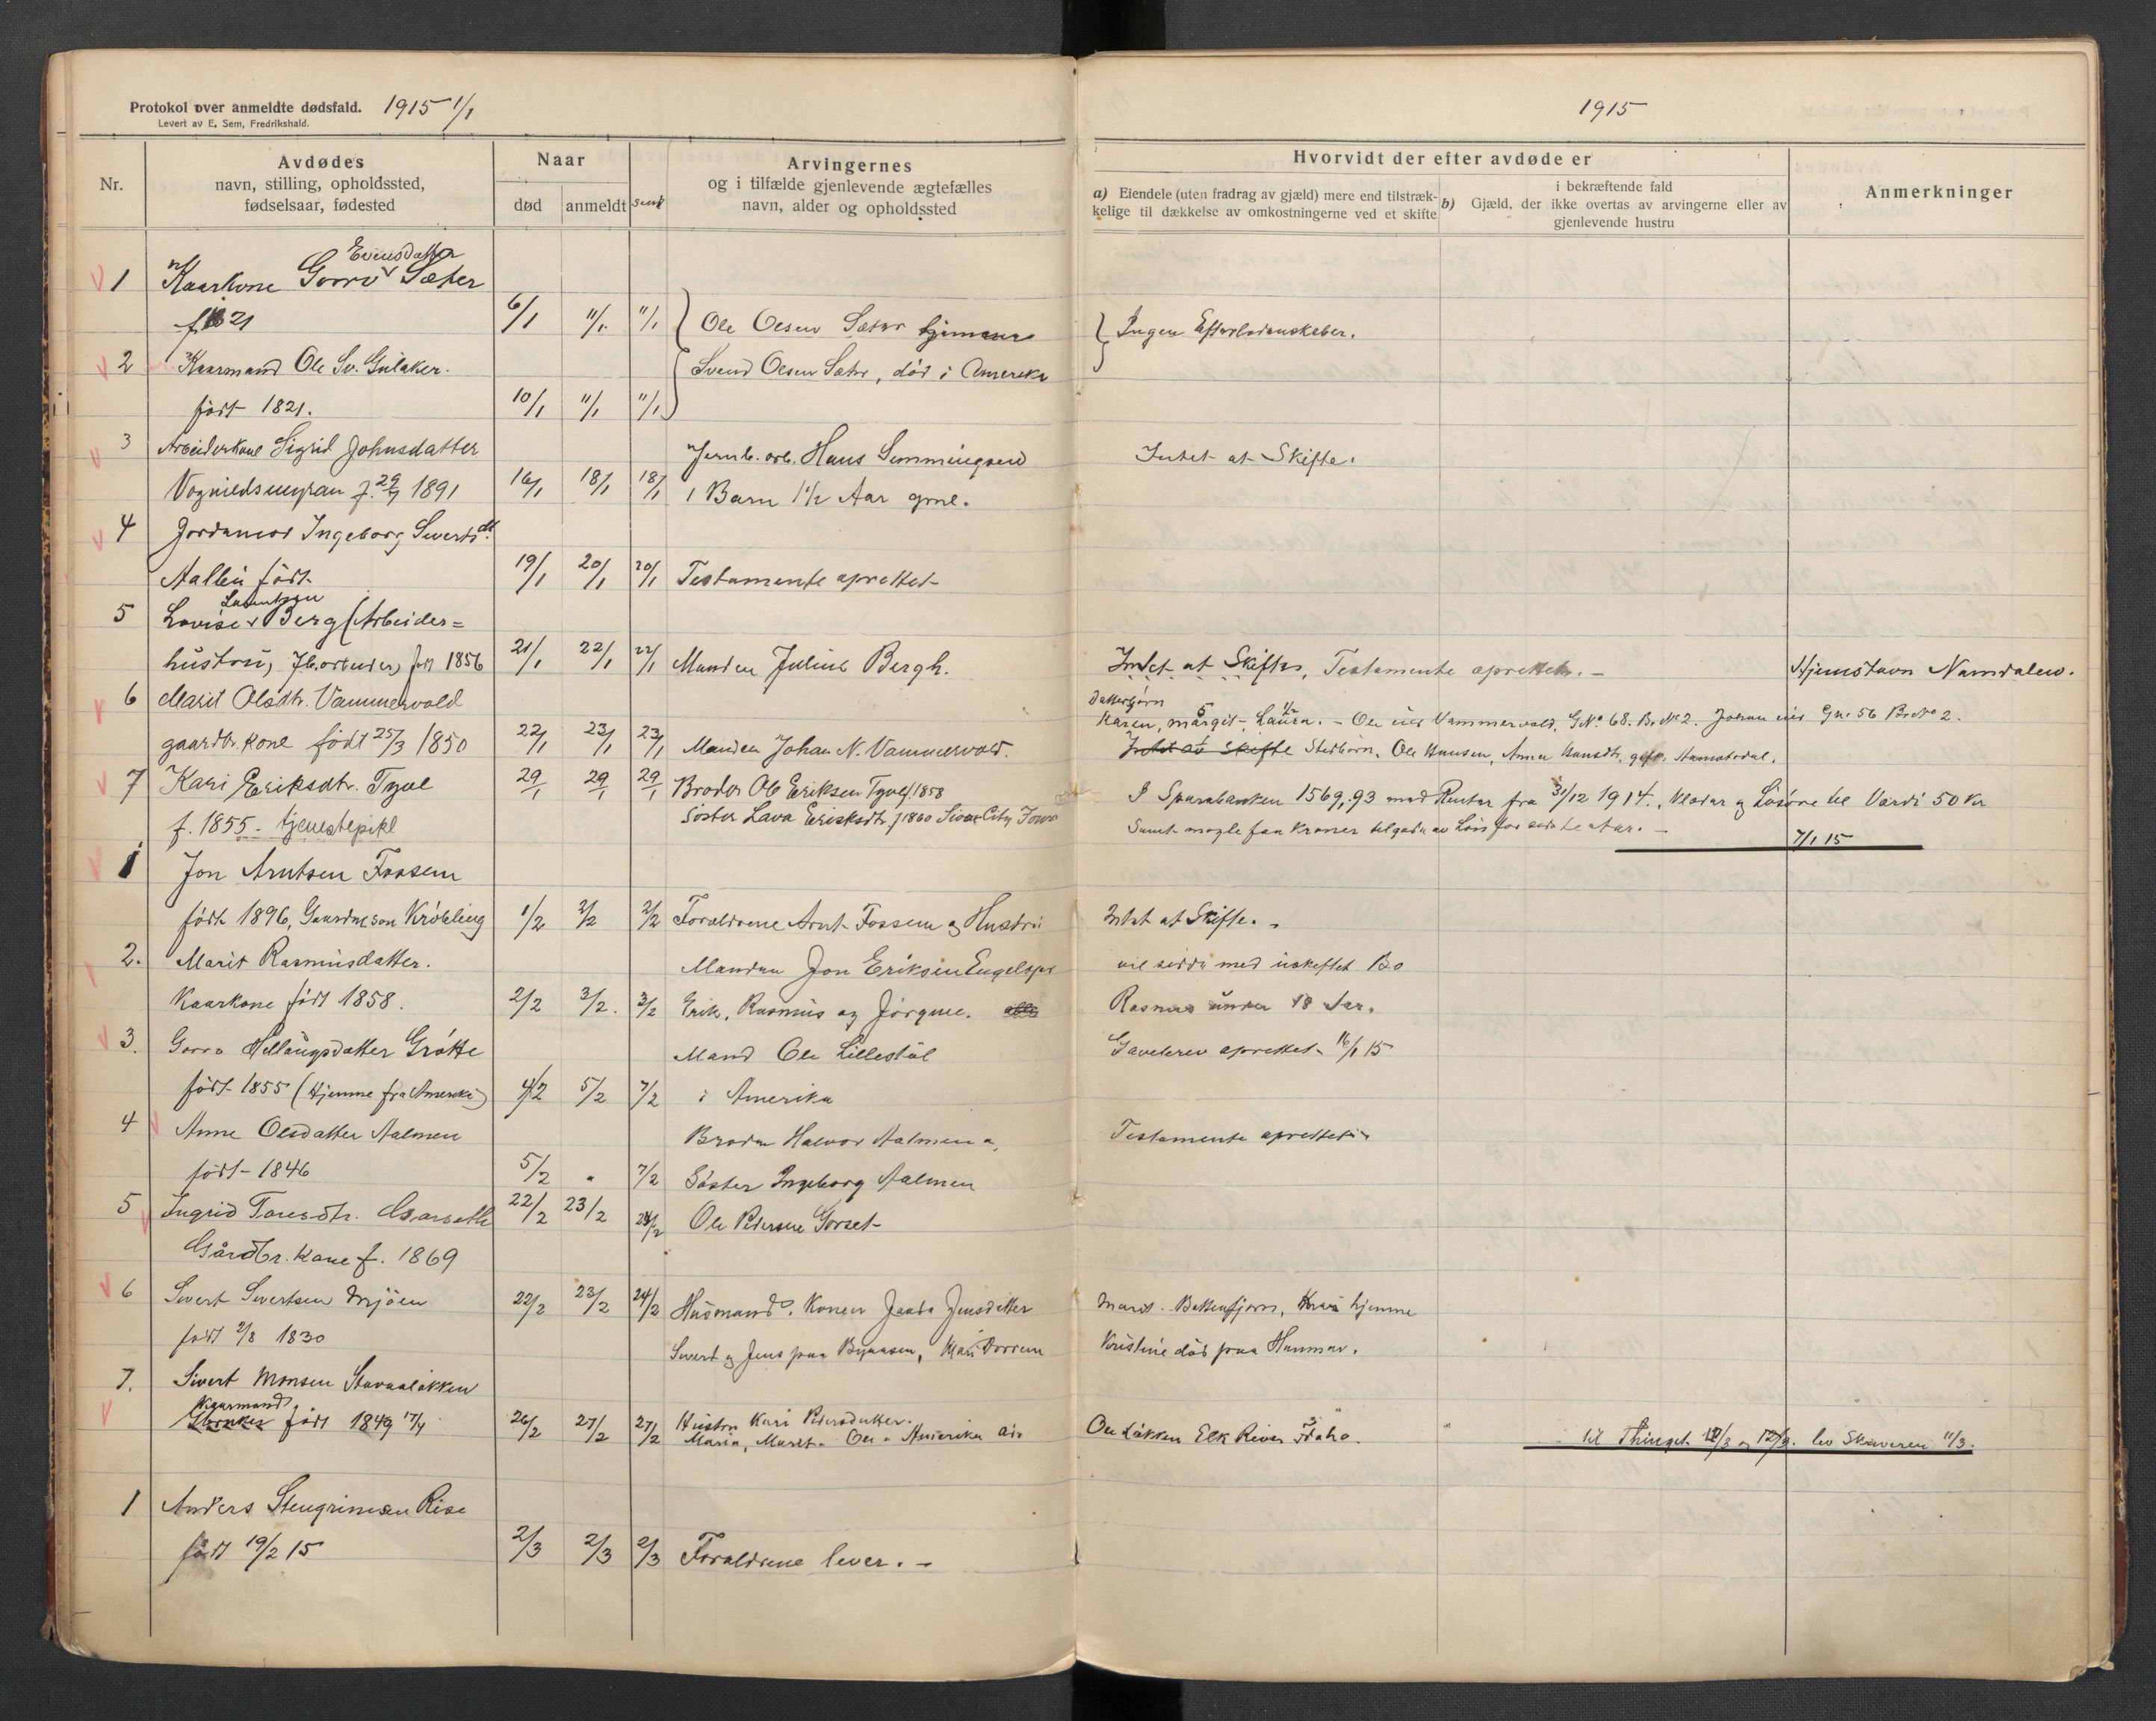 Protokol over anmeldte dødsfald. 1915 1/1
Levert av E. Sem, Fredrikshald.
1915
Nr.
Avdødes
navn, stilling, opholdssted,
fødselsaar, fødested
Naar
død
anmeldt
Arvingernes
og i tilfælde gjenlevende ægtefælles
navn, alder og opholdssted
Hvorvidt der efter avdøde er
a) Eiendele (uten fradrag av gjæld) mere end tilstræk-
kelige til dækkelse av omkostningerne ved et skifte
i bekræftende fald
b) Gjæld, der ikke overtas av arvingerne eller av
gjenlevende hustru
Anmerkninger
Evensdatter
1 Kaarkone Gorro Sæter
f. 1821 6/1 11/1 11/1 Ole Olsen Sæter hjemme Ingen Efterladenskaber.
2 Kaarmand Ole Sv. Gulaker. Svend Olsen Sæter, død i Amerika
født 1821. 10/1 11/1 11/1
3 Arbeiderkone Sigrid Johnsdatter Jernb. arb. Hans Semmingsen Intet at Skifte.
Vognildsmyran f. 29/7 1891 16/1 18/1 18/1 1 Barn 1 1/2 Aar gml.
4 Jordemor Ingeborg Sivertsdt.
Aalbu født 19/1 20/1 20/1 Testamente oprettet
5 Lovise Berg (Arbeider=
hustru, født 1856 21/1 22/1 22/1 Manden Julius Bergh. Intet at Skifte, Testamente oprettet. Hjemstavn Namdalen.
6 Marit Olsdtr. Vammervold
Datterbørn
Karen, Margit 5 Laura 1/2. G.No 68. Br.No 2. Johan Gn. 56 Br.No 2.
gaardbr. kone født 25/3 1850 22/1 23/1 23/1 Manden Johan N. Vammervold. Intet at Skifte Stedbørn, Ole Hansen, Anne Hansdtr.
7 Kari Eriksdtr. Tyvel 29/1 29/1 29/1 Broder Ole Eriksen Tyvel f. 1858 I Sparebanken 1569,93 med Renter fra 31/12 1914. Klæder og Løsøre til Værdi 50 Kr
f. 1855 - tjenestepike Søster Lava Eriksdtr. f 1860 Sioux City Iowa Samt nogle faa Kroner tilgode av Løn for sidste Aar.
7/1 15
1 Jon Arntsen Fossem
født 1896, Gaardm.søn Krøbling 1/2 2/2 2/2 Forældrene Arnt Fossem og Hustru Intet at Skifte.
2. Marit Rasmusdatter. Manden Jon Eriksen vil sidde med uskiftet Bo
Kaarkone født 1858. 2/2 3/2. 3/2 Erik, Rasmus og Jørgine. Rasmus under 18 Aar.
3. Gorro Hellaugsdatter Grøtte Mand Ole Lillestøl Gavebrev oprettet 16/1 15
født 1855 (hjemme fra Amerika) 4/2 5/2 7/2 i Amerika
4 Anne Olsdatter Aalmen Broder Halvor Aalmen Testamente oprettet
født 1846 5/2 " 7/2 Søster Ingeborg Aalmen
5 Ingrid Toresdtr. 22/2 23/2 24/2 Ole Pedersen Gorset
Gårdbr. kone f. 1869
6 Sivert Sivertsen Mjøen 22/2 23/2 24/2 Husmand. Konen Jensdatter Marit. Battenfjorn, hjemme
født 2/8 1830 Sivert og Jens paa Byaasen, Mari Dorrem Kristine død paa Hammer.
7. Sivert Monsen Stavaaløkken
Kaarmand
født 1849 17/4 26/2 27/2 27/2 Hustru Kari Pedersdatter.
Maria, Marit Ole Amerika Ole Løkken Elk River Idaho. til Thinget 12/3 lev Skriveren 11/3.
1 Anders Stengrimsen Rise
født 19/2 15 2/3 2/3 2/3 Forældrene lever.